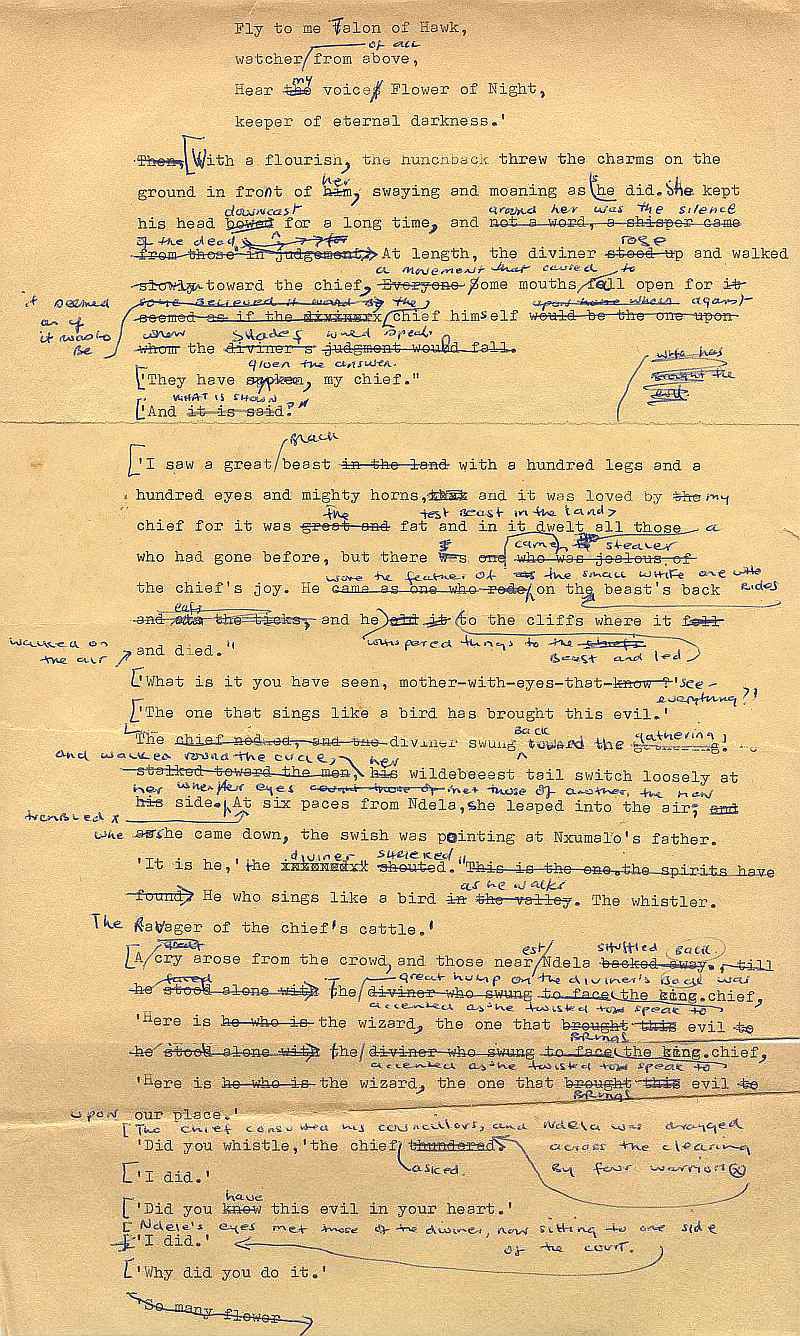 Fly to me Talon of Hawk,
of all
watcher from above,
my
Hear the voice Flower of Night,
keeper of eternal darkness.'
Then, With a flourish, the hunchback threw the charms on the
her
ground in front of him, swaying and moaning as she did. She kept
downcast around her was the silence
his head bowed for a long time, and not a word, a shisper came
of the dead rose
from those in judgement. At length, the diviner stood up and walked
a movement that caused to
slowly toward the chief, Everyone Some mouths fall open for it
it seemed
as if
it was to
be
seemed as if the diviner chief himself would be the one upon
whom shades would speak
whom the diviner's judgment would fall.
given the answer.
'They have spoken, my chief."
who has
brought the
evil.
WHAT IS SHOWN
'And it is said?"
Black
'I saw a great beast in the land with a hundred legs and a
hundred eyes and mighty horns, and it was loved by the my
the best beast in the land
chief for it was great and fat and in it dwelt all those a
came stealer
who had gone before, but there was one who was jealous of
wore the feather of the small white one who
the chief's joy. He came as one who rode on the beast's back rides
eats
and the ticks, and he did it to the cliffs where it fell
walked on
the air
whispered things to the chief's
Beast and led
and died."
'What is it you have seen, mother-with-eyes-that-know ? 'see-
everything?'
'The one that sings like a bird has brought this evil.'
Back gathering,
The chief nodded, and the diviner swung toward the gathering.
and walked round the circle, her
stalked toward the men, his wildebeeest tail switch loosely at
her when her eyes count those of met those of another, the man
his side. At six paces from Ndela, she leaped into the air, and
trembled
whe as she came down, the swish was pointing at Nxumalo's father.
diviner shrieked
'It is he,' the shouted. "This is the one. the spirits have
as he walks
found. He who sings like a bird in the valley. The whistler.
The Ravager of the chief's cattle.'
great est shuffled back.
A cry arose from the crowd, and those near Ndela backed away., till
faced great hump on the diviner's back was
he stood alone with the diviner who swung to face the king. chief,
accented as he twisted to speak to
'Here is he who is the wizard, the one that brought this evil to
BRINGS
he stood alone with the diviner who swung to face the king. chief,
accented as he twisted to speak to
'Here is he who is the wizard, the one that brought this evil to
BRINGS
upon our place.'
The chief consulted his councillors, and Ndela was dragged
across the clearing
By four warriors
'Did you whistle,' the chief thundered.
asked.
'I did.'
have
'Did you know this evil in your heart.'
Ndele's eyes met those of the diviner, now sitting to one side
of the court.
'I did.'
'Why did you do it.'
'So many flower